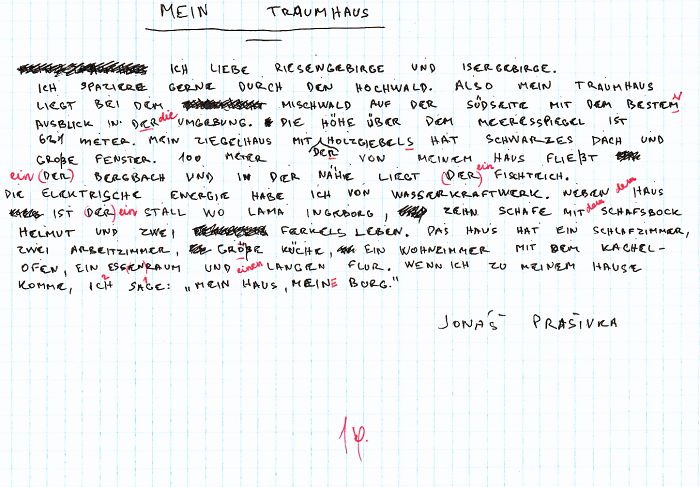 MEIN TRAUMHAUS
ICH LIEBE RIESENGEBIRGE UND ISERGEBIRGE.
ICH SPAZIERE GERNE DURCH DEN HOCHWALD. ALSO MEIN TRAUMHAUS
LIEGT BEI DEM MISCHWALD AUF DER SÜDSEITE MIT DEM BESTEM N
AUSBLICK IN DER die UMGEBUNG. DIE HÖHE ÜBER DEM MEERESSPIEGEL IST
METER. MEIN ZIEGELHAUS MIT DER HOLZGIEBELS HAT SCHWARZES DACH UND
GROßE FENSTER. 100 METER VON MEINEM HAUS FLIEßT
ein (DER) BERGBACH UND IN DER NÄHE LIEGT (DER) ein FISCHTEICH.
DIE ELEKTRISCHE ENERGIE HABE ICH VON WASSERKRAFTWERK. NEBEN dem HAUS
IST (DER) ein STALL WO LAMA INGEBORG, ZEHN SCHAFE MIT dem SCHAFSBOCK
HELMUT UND ZWEI FERKELS LEBEN. DAS HAUS HAT EIN SCHLAFZIMMER,
ZWEI ARBEITZIMMER, GRÖßE KÜCHE, EIN WOHNZIMMER MIT DEM KACHEL-
OFEN, EIN ESSENRAUM UND einen LANGEN FLUR. WENN ICH ZU MEINEM HAUSE
KOMME, ICH 2 SAGE 1: „MEIN HAUS, MEINE BURG."
JONÁŠ PRAŠIVKA